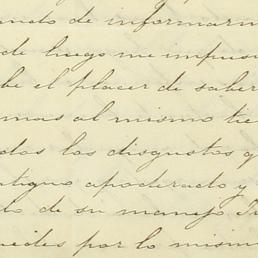 ando de informarm
de luego me impuse
be el placer de saber
mas al mismo tie
dos los disgustos q
ntiguo apoderado y
lo de su manejo
uedes por lo mism